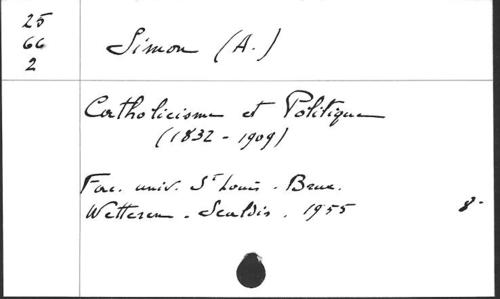 25
66
2
Simon (A.)
Catholicisme et Politique
(1832 - 1909)
Fac. univ. St Louis. Brux.
Wetteren - Scaldis. 1955
8-